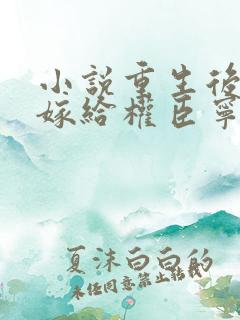 小說重生後
嫁給權臣寧
夏沫白白的
未经同意禁止转载